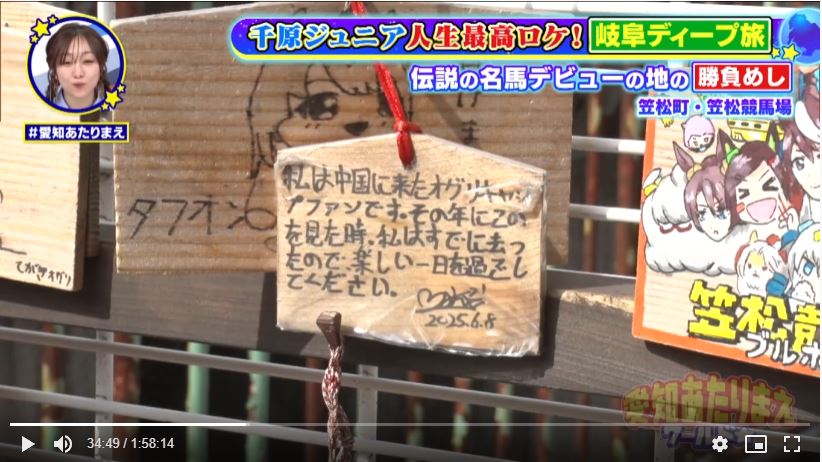 千原ジュニア人生最高ロケ！岐阜ディープ旅
伝説の名馬デビューの地の勝負めし
笠松町・笠松競馬場
#愛知あたりまえ
タフオン
てがきオグリ
私は中国に来たオグリキャッ
プファンです。その年にこの
を見た時、私はすでに去っ
たので、楽しい一日を過ごし
てください。
2025.6.8
笠松
ブルボ
愛知あたりまえ
34:49 / 1:58:14